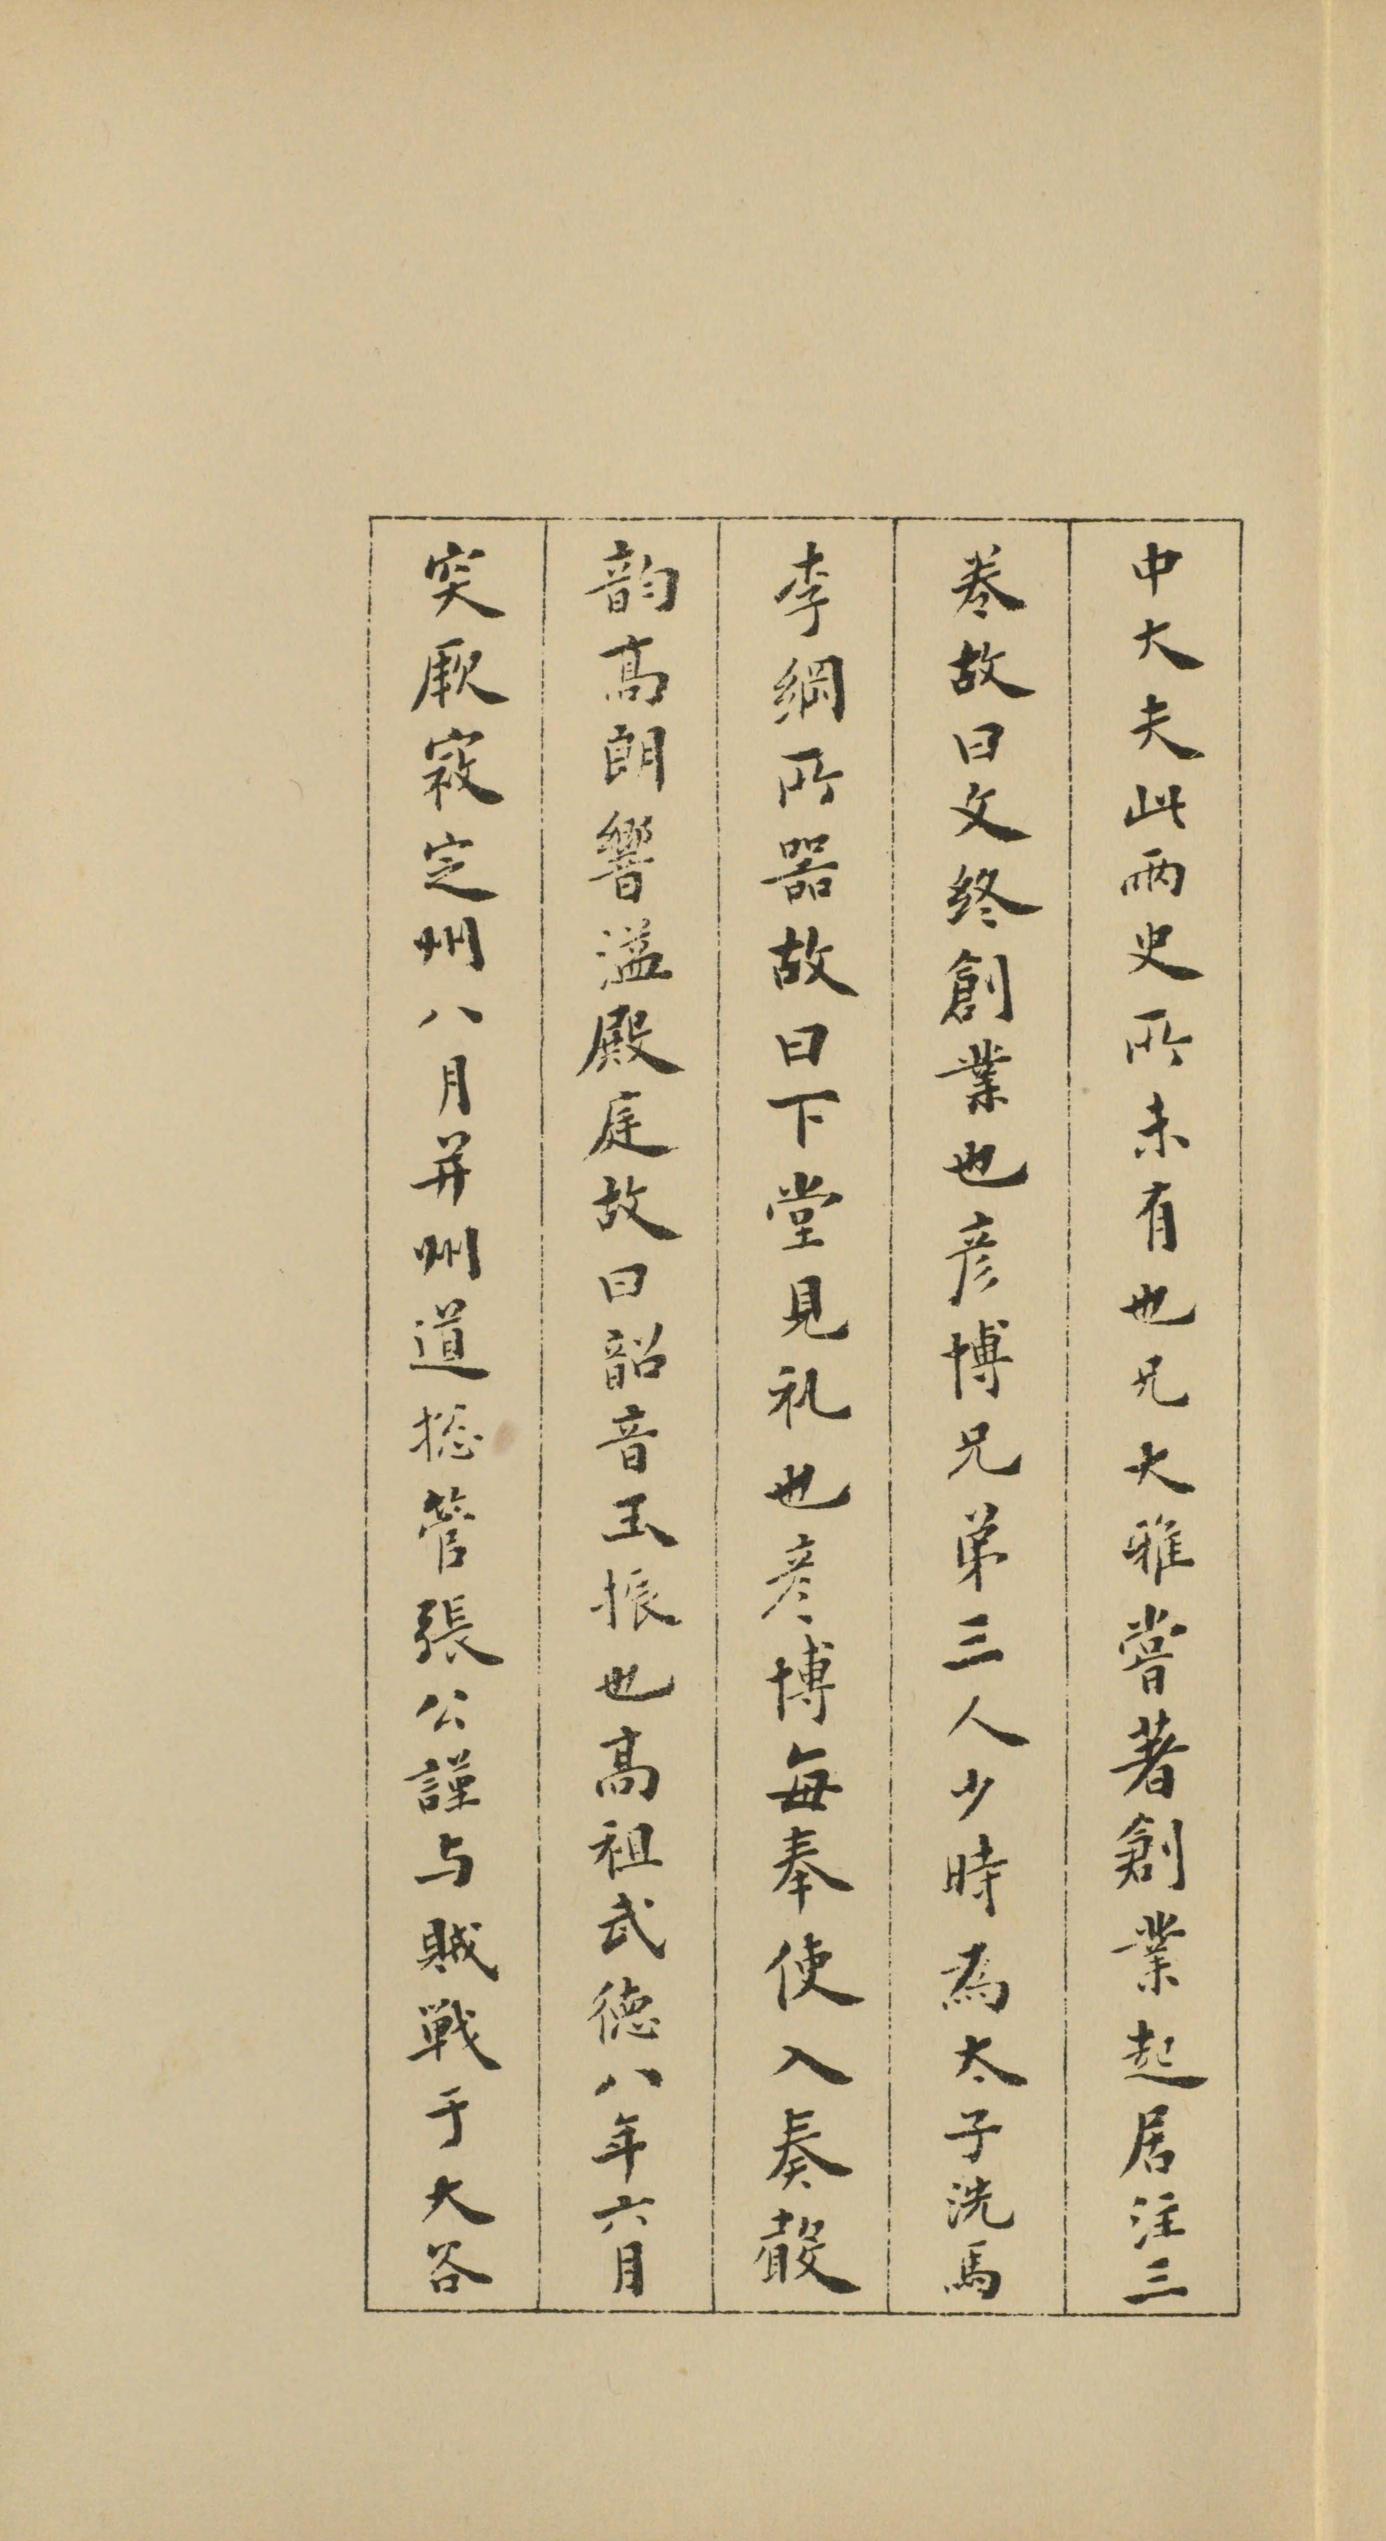 中大夫此兩史所未有也兄大雅嘗著創業起居注三
卷故曰文終創業也彦博兄弟三人少時為太子洗馬
李綱所器故曰下堂見礼也彦博每奉使入奏聲
韵高朗響溢殿庭故曰韶音玉振也高祖武徳八年六月
突厥寇定州八月并州道摠管張公謹与賊戰于大谷